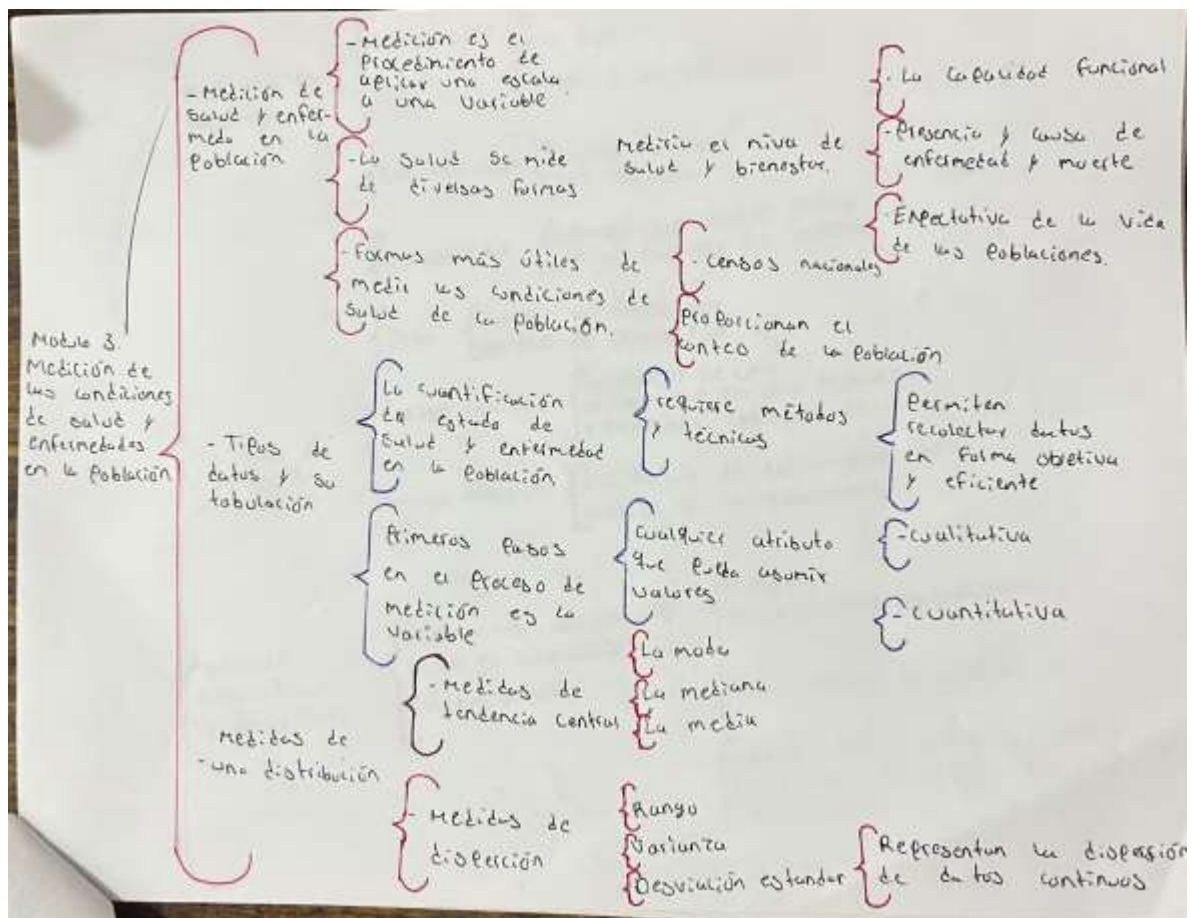 Modulo 3.
Medición de
las condiciones
de salud y
enfermedades
en la Población
- Medición de
salud y enfer-
meda en la
Población
- Medición es el
Procedimiento de
aplicar una escala
a una variable
- La salud se mide
de diversas formas
Mediría el nivel de
salud y bienestar.
- La capacidad funcional
- Presencia y causa de
enfermedad y muerte
- Expectativa de la vida
de las Poblaciones.
- Formas más útiles de
medir las condiciones de
salud de la Población.
- Censos nacionales
Proporcionan el
conteo de la Población
- Tipos de
datos y su
tabulación
La cuantificación
de estado de
salud y enfermedad
en la Población
requiere métodos
y técnicas
Permiten
recolectar datos
en forma objetiva
y eficiente
Primeros Pasos
en el Proceso de
medición es la
variable
Cualquier atributo
que Pueda asumir
valores
- Cualitativa
- Cuantitativa
Medidas de
- una distribución
- Medidas de
tendencia Central
La moda
La mediana
La media
- Medidas de
disperción
Rango
Varianza
Desviación estandar
Representan la dispersión
de datos continuos